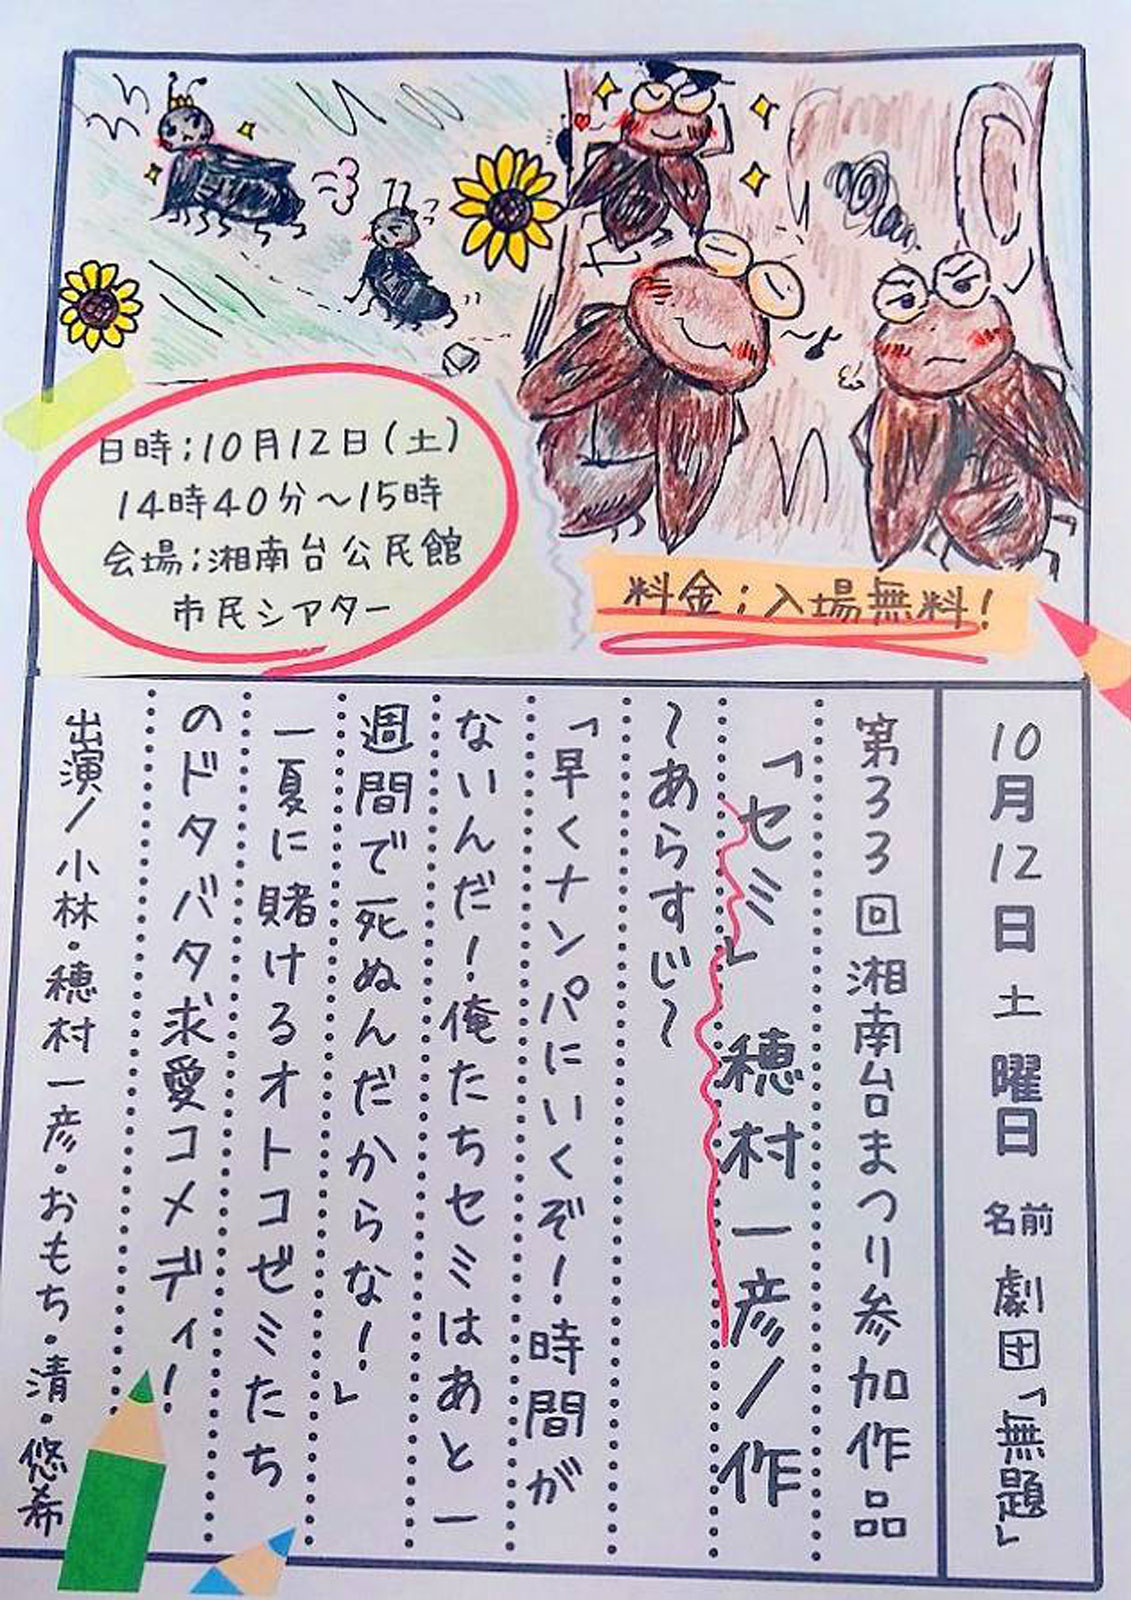 日時;10月12日(土)
14時40分～15時
会場;湘南台公民館
市民シアター
料金;入場無料!
10月12日土曜日 名前 劇団「無題」
第33回湘南台まつり参加作品
「セミ」 穂村一彦/作
～あらすじ～
「早くナンパにいくぞー!時間が
ないんだ!俺たちセミはあと一
週間で死ぬんだからなー!」
一夏に賭けるオトコゼミたち
のドタバタ求愛コメディー!
出演/小林・穂村一彦・おもち・清・悠希